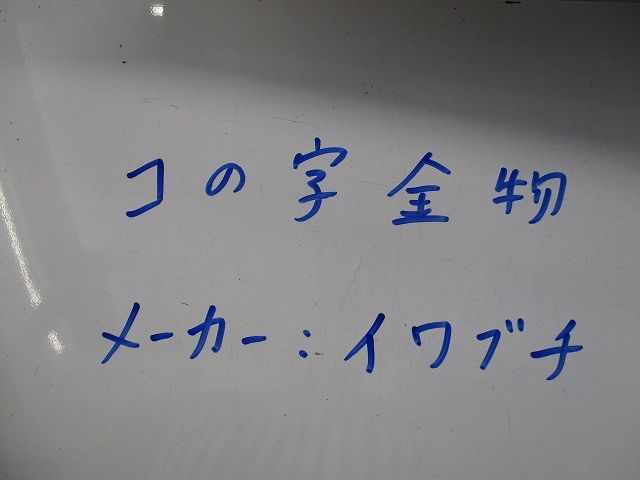 コの字金物
メーカー:イワブチ